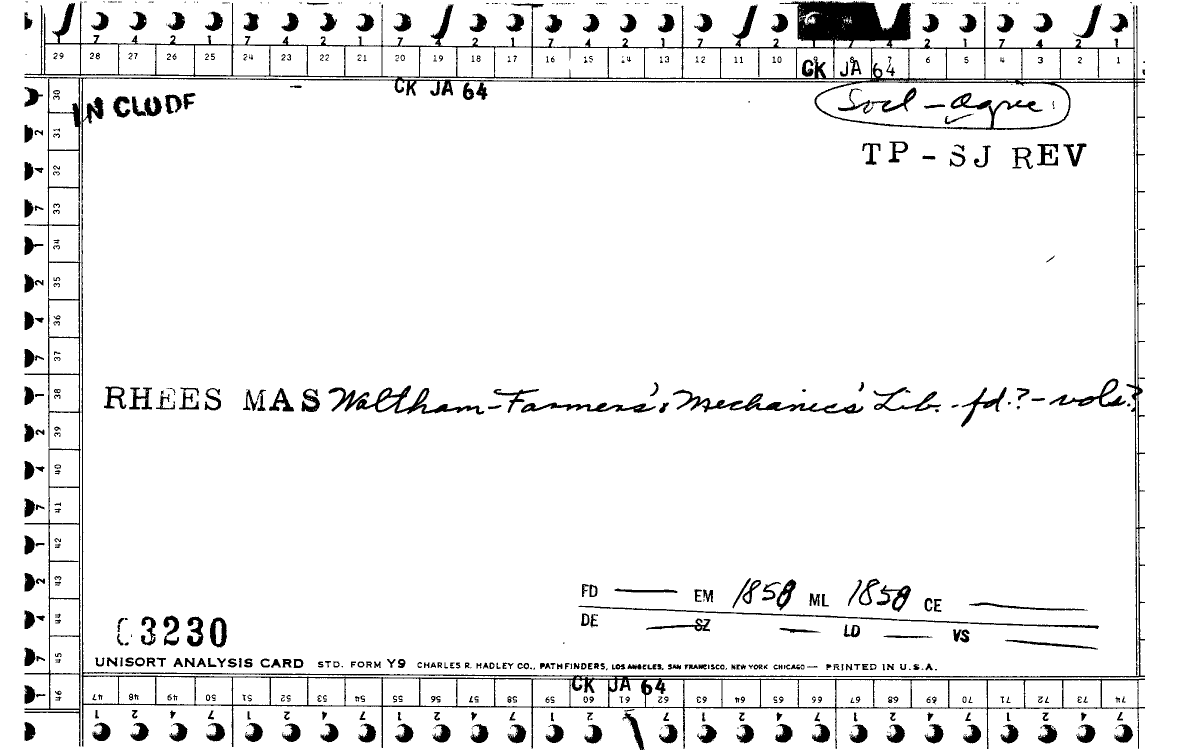 7 4 2 1 7 4 2 1 7 4 2 1 7 4 2 1 7 4 2 1 7 4 2 1 7 4 2 1
29 28 27 26 25 24 23 22 21 20 19 18 17 16 15 14 13 12 11 10 9 8 7 6 5 4 3 2 1
CK JA 64
CK JA 64
IN CLUDE
Socl - Agric.
TP - SJ REV
30
2 31
4 32
7 33
1 34
2 35
4 36
7 37
RHEES MAS Waltham - Farmers' & Mechanics' Lib. - fd.? - vols?
1 38
2 39
4 40
7 41
1 42
2 43
4 44
7 45
1 46
FD — EM 1858 ML 1858 CE —
DE — SZ — LD — VS —
03230
UNISORT ANALYSIS CARD STD. FORM Y9 CHARLES R. HADLEY CO., PATHFINDERS, LOS ANGELES, SAN FRANCISCO, NEW YORK CHICAGO — PRINTED IN U.S.A.
CK JA 64
47 48 49 50 51 52 53 54 55 56 57 58 59 60 61 62 63 64 65 66 67 68 69 70 71 72 73 74
1 2 4 7 1 2 4 7 1 2 4 7 1 2 4 7 1 2 4 7 1 2 4 7 1 2 4 7